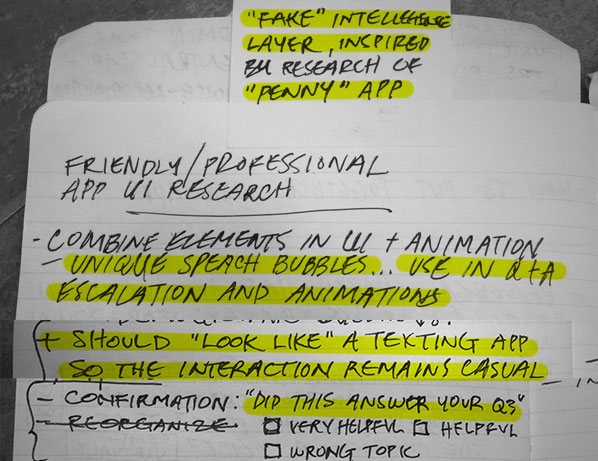 "FAKE" INTELLEGENCE
LAYER, INSPIRED
BY RESEARCH OF
"PENNY" APP
FRIENDLY/PROFESSIONAL
APP UI RESEARCH
- COMBINE ELEMENTS IN UI + ANIMATION
- UNIQUE SPEACH BUBBLES... USE IN Q+A
ESCALATION AND ANIMATIONS
+ SHOULD "LOOK LIKE" A TEXTING APP
SO THE INTERACTION REMAINS CASUAL
- CONFIRMATION: "DID THIS ANSWER YOUR Q?"
- REORGANIZE □ VERY HELPFUL □ HELPFUL
□ WRONG TOPIC